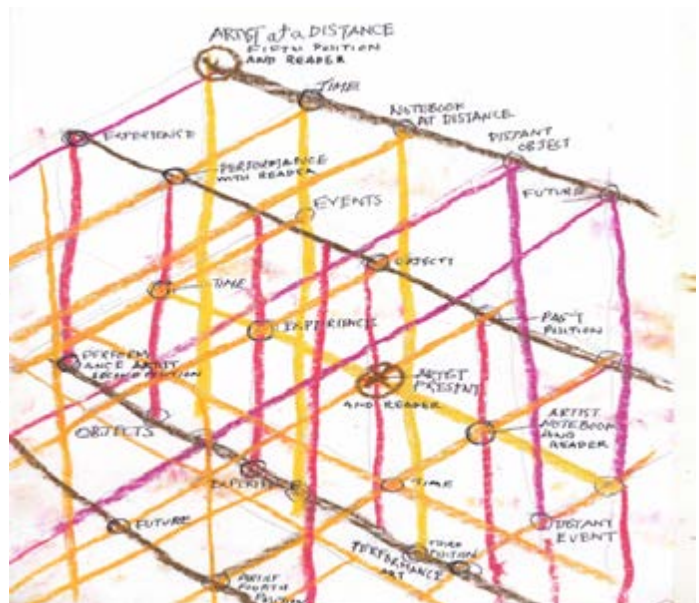 ARTIST at a DISTANCE
FIFTH POSITION
AND READER
TIME
NOTEBOOK
AT DISTANCE
DISTANT
OBJECT
EXPERIENSE
PERFORMANCE
WITH READER
FUTURE
EVENTS
OBJECTS
TIME
EXPERIENCE
PAST
POSITION
PERFORM
ANCE ARTIST
SECOND POSITION
ARTIST
PRESENT
AND READER
ARTIST
NOTEBOOK
AND
READER
OBJECTS
EXPERIENCE
TIME
FUTURE
DISTANT
EVENT
THIRD POSITION
PERFORMANCE
ART
ARTIST
FOURTH
POSITION